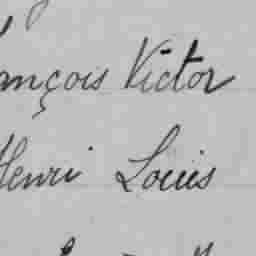 ançois Victor
Henri Louis